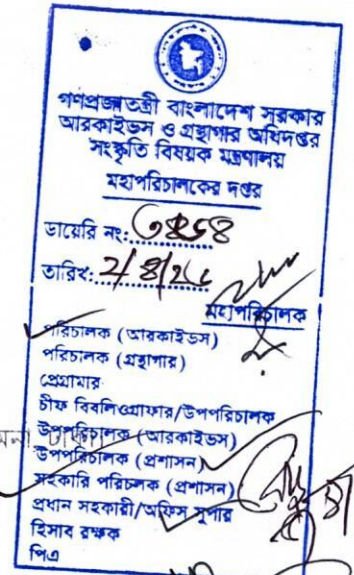 গণপ্রজাতন্ত্রী বাংলাদেশ সরকার
আরকাইভস ও গ্রন্থাগার অধিদপ্তর
সংস্কৃতি বিষয়ক মন্ত্রণালয়
মহাপরিচালকের দপ্তর
ডায়েরি নং:
তারিখ:
মহাপরিচালক
পরিচালক (আরকাইভস)
পরিচালক (গ্রন্থাগার)
প্রোগ্রামার
চীফ বিবলিওগ্রাফার/উপপরিচালক
উপপরিচালক (আরকাইভস)
উপপরিচালক (প্রশাসন)
সহকারি পরিচালক (প্রশাসন)
প্রধান সহকারী/অফিস সুপার
হিসাব রক্ষক
পিএ